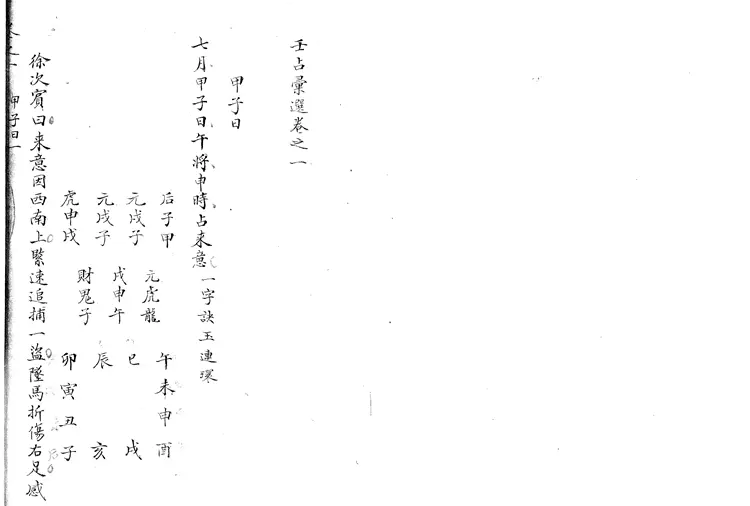 壬占彙選卷之一
甲子日
七月甲子日午將申時占來意 一字訣玉連環
后子甲
元戌子
元戌子
虎申戌
元虎龍
戌申午
財鬼子
午未申酉
巳 戌
辰 亥
卯寅丑子
徐次賓曰來意因西南上緊速追捕一盜墜馬折傷右足感
甲子日一